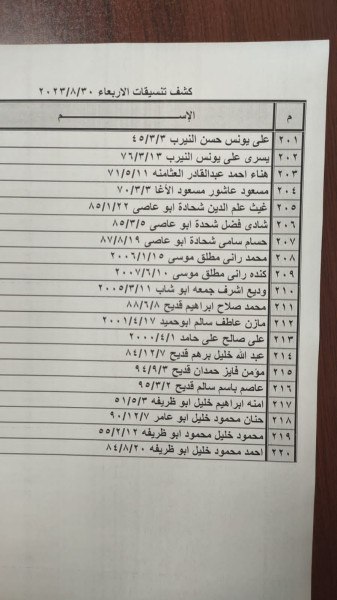 كشف تنسيقات الاربعاء ٢٠٢٣/٨/٣٠
م الإســـــــم
٢٠١ على يونس حسن النيرب ٤٥/٣/٣
٢٠٢ يسرى على يونس النيرب ٧٦/٣/١٣
٢٠٣ هناء احمد عبدالقادر العثامنه ٧١/٥/١١
٢٠٤ مسعود عاشور مسعود الأغا ٧٠/٣/٣
٢٠٥ غيث علم الدين شحادة ابو عاصى ٨٥/١/٢٢
٢٠٦ شادى فضل شحدة ابو عاصى ٨٥/٣/٥
٢٠٧ حسام سامى شحادة ابو عاصى ٨٧/٨/١٩
٢٠٨ محمد رانى مطلق موسى ٢٠٠٦/١/١٥
٢٠٩ كنده رانى مطلق موسى ٢٠٠٧/٦/١٠
٢١٠ وديع اشرف جمعه ابو شاب ٢٠٠٥/٣/١١
٢١١ محمد صلاح ابراهيم قديح ٨٨/٦/٨
٢١٢ مازن عاطف سالم ابوحميد ٢٠٠١/٤/١٧
٢١٣ على صالح على حامد ٢٠٠٠/٤/١
٢١٤ عبد الله خليل برهم قديح ٨٤/١٢/٧
٢١٥ مؤمن فايز حمدان قديح ٩٤/٩/٣
٢١٦ عاصم باسم سالم قديح ٩٥/٣/٢
٢١٧ امنه ابراهيم خليل ابو ظريفه ٥١/٥/٣
٢١٨ حنان محمود خليل ابو عامر ٩٠/١٢/٧
٢١٩ محمود خليل محمود ابو ظريفه ٥٥/٢/١٢
٢٢٠ احمد محمود خليل ابو ظريفه ٨٤/٨/٢٠